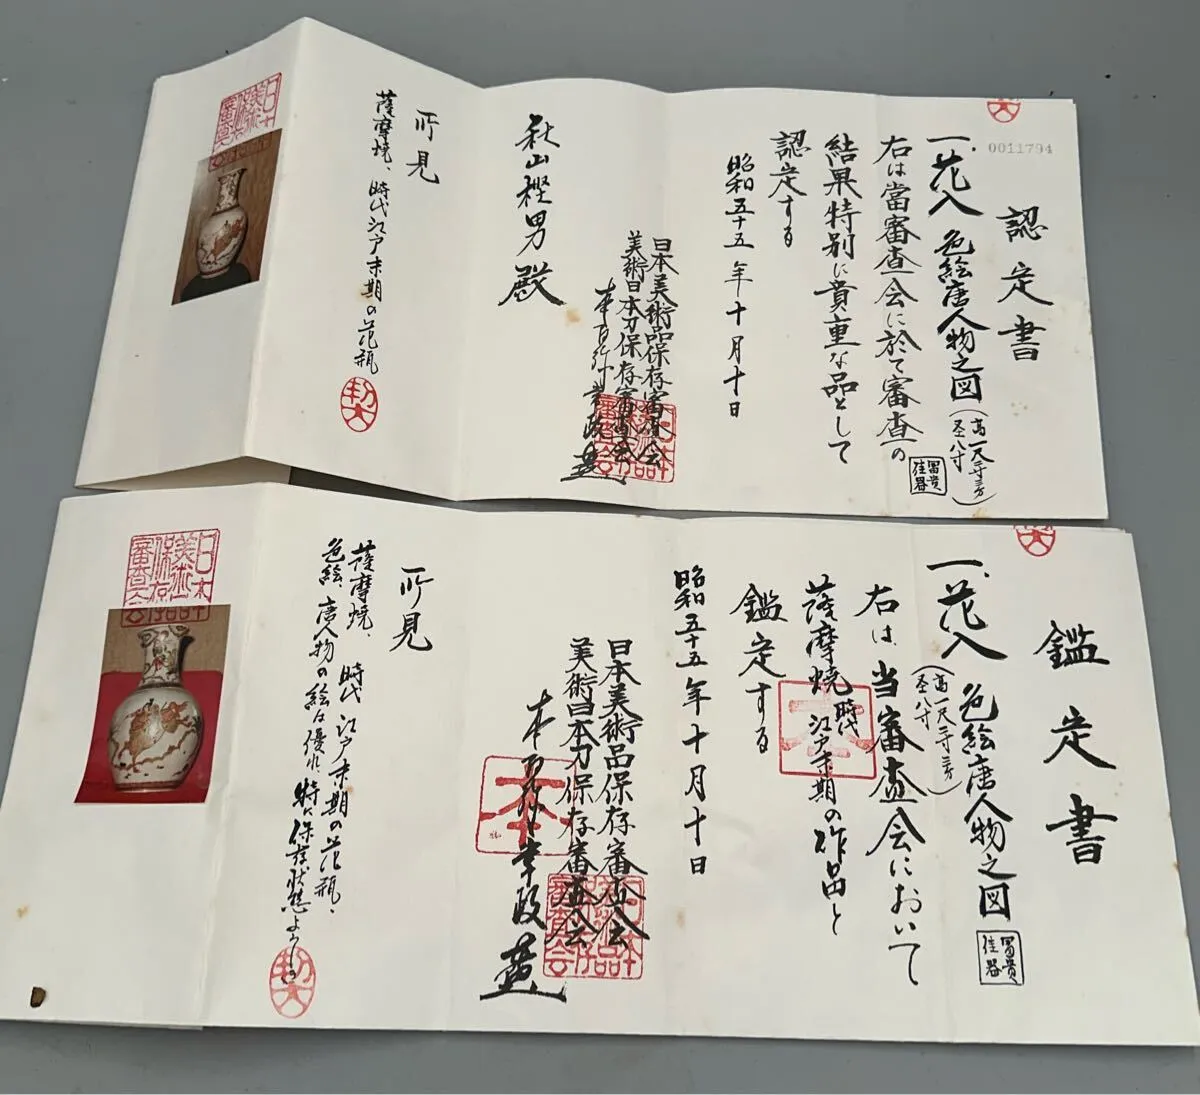 認定書
0011794
一、花入 色絵唐人物之図
(高一尺寸三分
圣八寸)
富貴
佳器
右は當審査会に於て審査の
結果特別に貴重な品として
認定する
昭和五十五年十月十日
日本美術品保存審査会
美術日本刀保存審査会
秋山樫男殿
所見
薩摩焼、時代江戸末期の花瓶
日本
美術品
保存
審査会
鑑定書
一、花入 色絵唐人物之図
(高一尺寸三分
圣八寸)
富貴
佳器
右は当審査会において
薩摩焼時代江戸末期の作品と
鑑定する
昭和五十五年十月十日
日本美術品保存審査会
美術日本刀保存審査会
所見
薩摩焼、時代江戸末期の花瓶、
色絵、唐人物の絵は優れ、特に保存状態よし
日本
美術品
保存
審査会